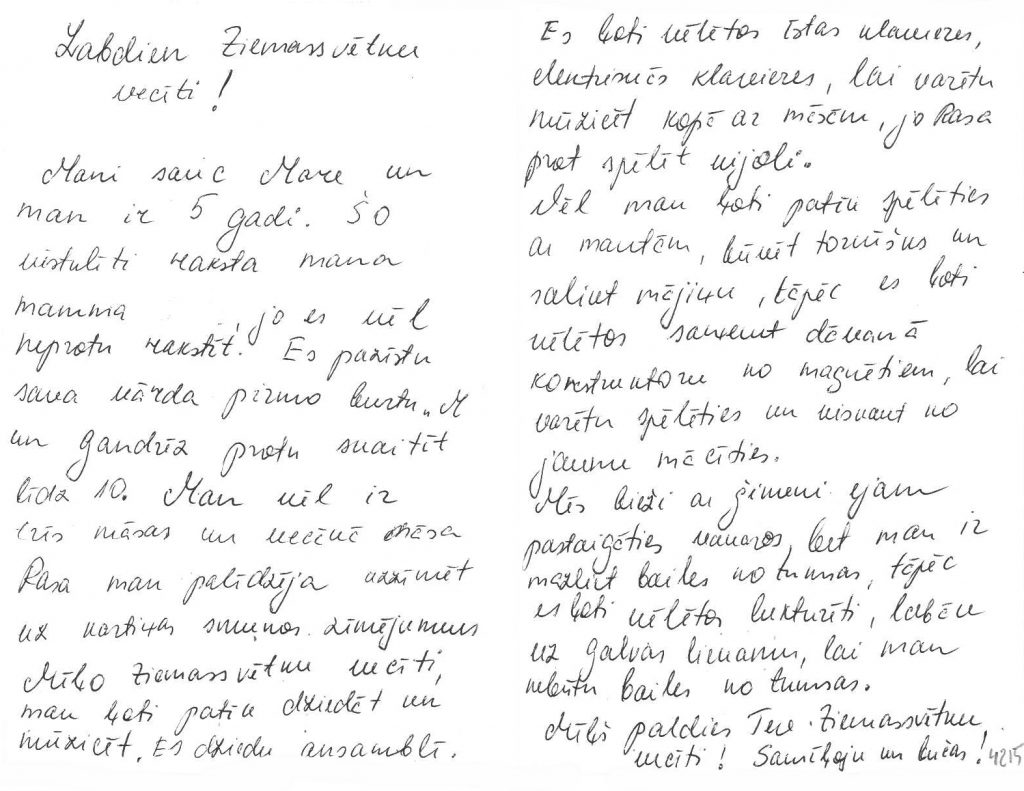 Labdien Ziemassvētku
vecīti!
Mani sauc Mare un
man ir 5 gadi. Šo
vēstulīti raksta mana
mamma, jo es vēl
neprotu rakstīt. Es pazīstu
sava vārda pirmo burtu „M
un gandrīz protu skaitīt
līdz 10. Man vēl ir
trīs māsas un vecākā māsa
Rasa man palīdzēja uzzīmēt
uz kartiņas smukos zīmējumus
Mīļo Ziemassvētku vecīti,
man ļoti patīk dziedāt un
mūzicēt. Es dziedu ansamblī.
Es ļoti vēlētos īstas klavieres,
elektriskās klavieres, lai varētu
mūzicēt kopā ar māsām, jo Rasa
prot spēlēt vijoli.
Vēl man ļoti patīk spēlēties
ar mantām, būvēt torņus un
salikt mājiņu, tāpēc es ļoti
vēlētos saņemt dāvanā
konstruktoru no magnētiem, lai
varētu spēlēties un visu ko no
jauna mācīties.
Mēs bieži ar ģimeni ejam
pastaigāties vakaros, bet man ir
mazliet bailes no tumsas, tāpēc
es ļoti vēlētos lukturīti, labāk
uz galvas liekamu, lai man
nebūtu bailes no tumsas.
Mīļš paldies Tev Ziemassvētku
vecīti! Samīļoju un bučas! 4215